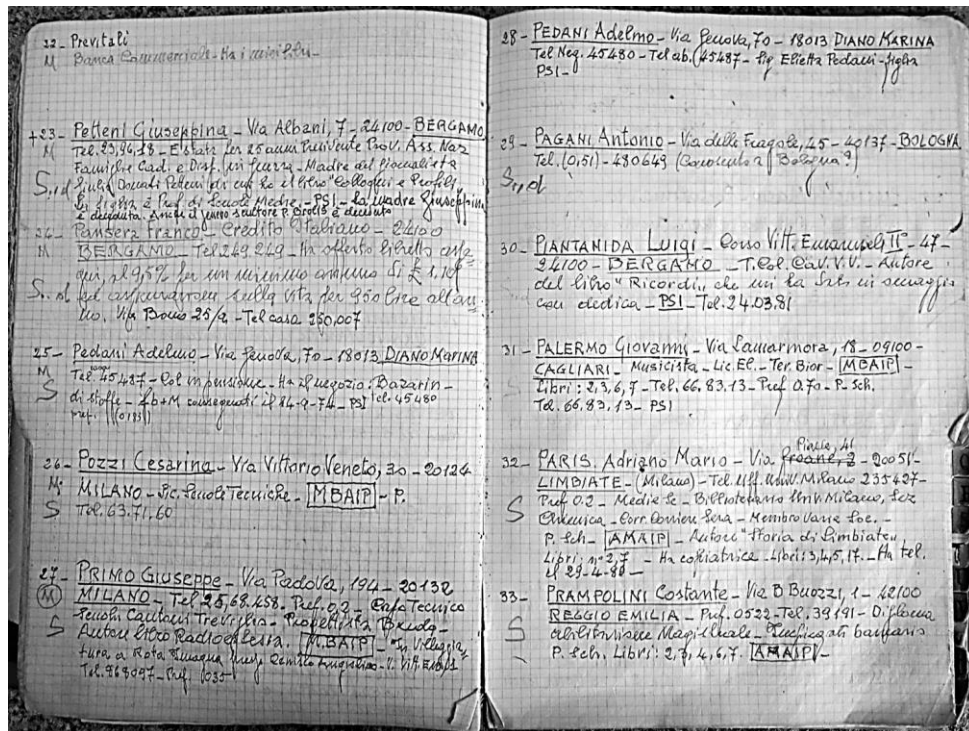 22- Previtali
M Banca Commerciale - Ha i miei libri -
+23- Petteni Giuseppina - Via Albani, 7 - 24100 - BERGAMO
M Tel. 23,96,18 - È stata per 25 anni Presidente Prov. Ass. Naz
Famiglie Cad. e Disp. in guerra - Madre del giornalista
S., d Giulia Donati Petteni di cui ho il libro "Colloqui e Profili"
figlia è Prof. di Scuole Medie. - PSI - La madre Giuseppina
è deceduta. Anche il scultore P. Brolis è deceduto
24- Pansera Franco - Credito Italiano - 24100
M BERGAMO - Tel 249.249 - Ha offerto libretto
al 9,5% per un minimo annuo di £
S., d assicurazione sulla vita per 950 lire
no. Via 25/a - Tel casa 250,007
25- Pedani Adelmo - Via Genova, 70 - 18013 DIANO MARINA
M Tel. 45487 - Col in pensione - Ha il negozio: Bazarin -
S di stoffe - 2b+M consegnati il - 9 - 74 - PSI Tel. 45480
pref. (0183)
26- Pozzi Cesarina - Via Vittorio Veneto, 30 - 20124
M. MILANO - Lic. Scuole Tecniche - MBAIP - P.
S Tel. 63.71.60
27- PRIMO GIUSEPPE - Via Padova, 194 - 20132
M MILANO - Tel 25,68.458 - Pref. 0,2 - Capo Tecnico
S Cantoni Treviglio - Progettista Breda -
Autore libro Radioestesia. MBAIP - In villeggia-
tura a Rota Imagna - V. Vitt. Em.
Tel. 868097 - Pref. 035
28- PEDANI Adelmo - Via Genova, 70 - 18013 DIANO MARINA
Tel Neg. 45480 - Tel ab. (45487 - Sig Elietta Pedani - figlia
PSI -
29- PAGANI Antonio - Via delle Fragole, 45 - 40137 - BOLOGNA
Tel. (0,51) - 480649 (Conosciuto a Bologna?)
S., d
30- PIANTANIDA LUIGI - Corso Vitt. Emanuele II° - 47 -
24100 - BERGAMO - T. Col. Cav. V.V. - Autore
del libro "Ricordi", che mi ha dato in omaggio
con dedica - PSI - Tel. 24.03.81
31- PALERMO Giovanni - Via Lamarmora, 18 - 09100 -
CAGLIARI - Musicista - Lic. El. - Ter. Bior - MBAIP -
Libri: 2,3,6,7 - Tel. 66,83.13 - Pref 070 - P. Sch.
Tel. 66,83,13 - PSI
Piacia, 41
32- PARIS. Adriano Mario - Via - 20051 -
S LIMBIATE - (Milano) - Tel. Uff. Univ. Milano 235427 -
Pref 0.2 - Medie Sc - Bibliotecario Univ. Milano, Sez
Chimica - Corr. Corriere Sera - Membro Varie Soc. -
P. Sch - AMAIP - Autore "Storia di Limbiate"
Libri: n° 2,7 - Ha copiatrice - Libri: 3,4,5,17. - Ha tel.
il 29-4-80 -
33- PRAMPOLINI Costante - Via B Buozzi, 1 - 42100
S REGGIO EMILIA - Pref. 0522 - Tel. 39191 - Diploma
abilitazione Magistrale - Impiegato bancario
P. Sch. Libri: 2,3,4,6,7. AMAIP -